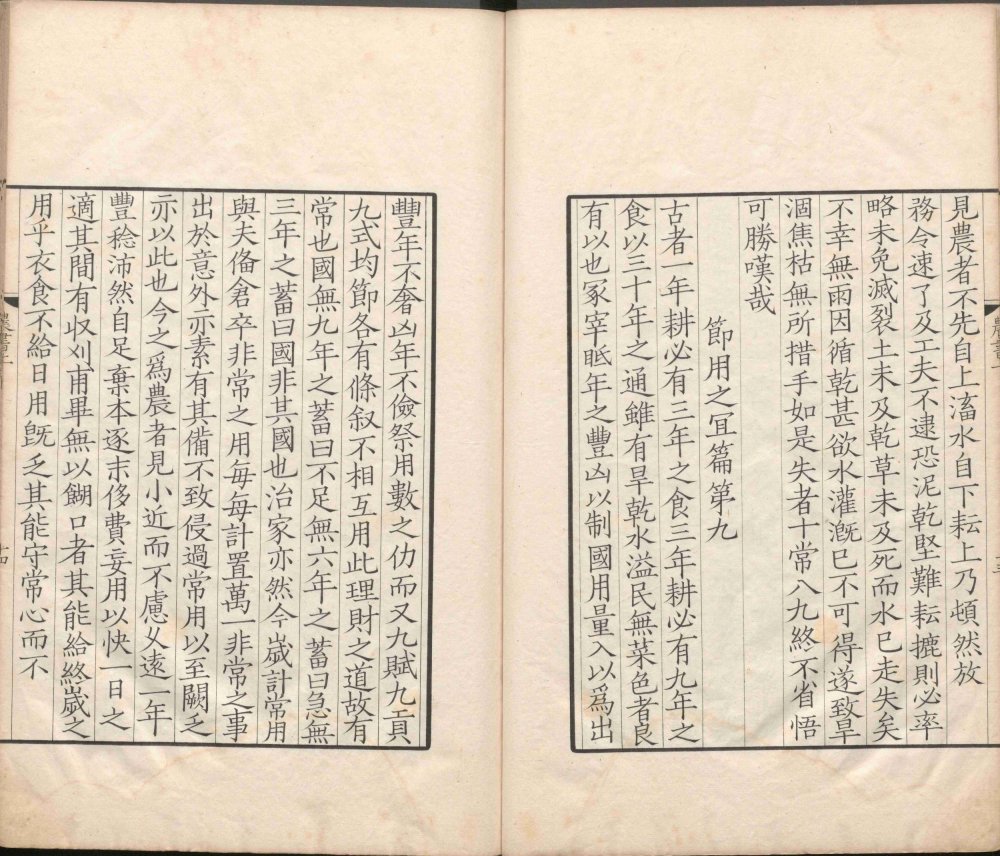 見農者不先自上滀水自下耘上乃頓然放
務令速了及工夫不逮恐泥乾堅難耘摝則必率
略未免滅裂土未及乾草未及死而水已走失矣
不幸無雨因循乾甚欲水灌漑已不可得遂致旱
涸焦枯無所措手如是失者十常八九終不省悟
可勝嘆哉
節用之冝篇第九
古者一年耕必有三年之食三年耕必有九年之
食以三十年之通雖有旱乾水溢民無菜色者良
有以也冢宰眡年之豐凶以制國用量入以爲出
豐年不奢凶年不儉祭用數之仂而又九賦九貢
九式均節各有條叙不相互用此理財之道故有
常也國無九年之蓄曰不足無六年之蓄曰急無
三年之蓄曰國非其國也治家亦然今歲計常用
與夫俻倉卒非常之用每每計置萬一非常之事
出於意外亦素有其備不致侵過常用以至闕乏
亦以此也今之爲農者見小近而不慮久逺一年
豐稔沛然自足棄本逐末侈費妄用以快一日之
適其間有収刈甫畢無以餬口者其能給終歲之
用乎衣食不給日用旣乏其能守常心而不
農書上
十四